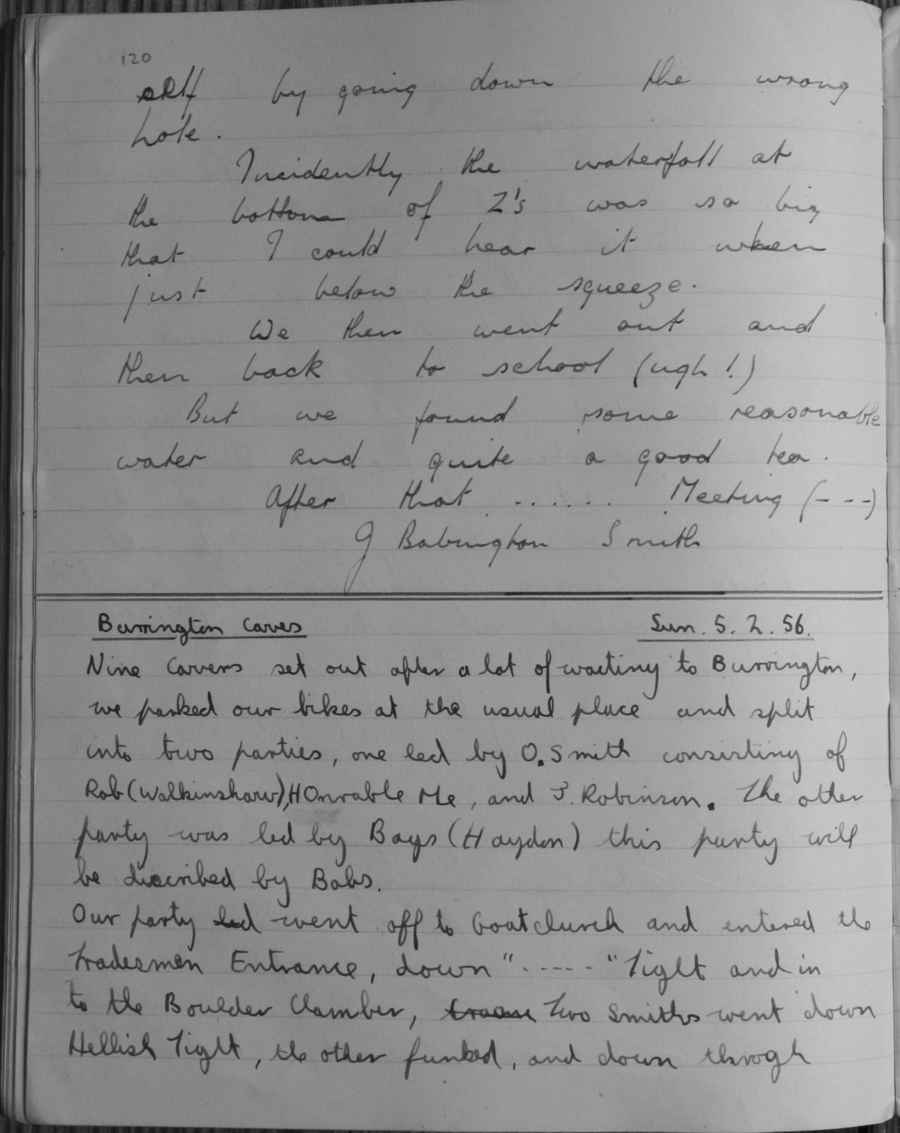 120
self by going down the wrong
hole.
Incidently the waterfall at
the bottom of Z's was so big
that I could hear it when
just below the squeeze.
We then went out and
then back to school (ugh!)
But we found some reasonable
water and quite a good tea.
After that ...... Meeting (---)
G Babington Smith
Burrington Caves Sun. 5. 2. 56.
Nine Cavers set out after a lot of waiting to Burrington,
we parked our bikes at the usual place and split
into two parties, one led by O. Smith consisting of
Rob (Walkinshaw), HOnrable Me, and J. Robinson. The other
party was led by Bays (Haydon) this party will
be discribed by Babs.
Our party led went off to Goatchurch and entered the
Tradesmen Entrance, down "-----" Tight and in
to the Boulder Chamber, Two Smiths went down
Hellish Tight, the other funked, and down throgh